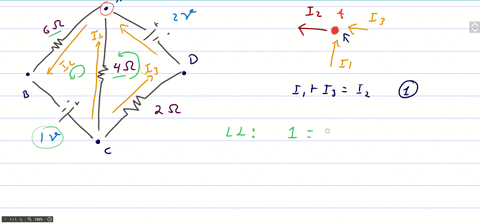 2v
6Ω
I2
I2
4Ω
I3
D
B
2Ω
1v
C
I2
4
I3
I1
I1 + I3 = I2 ①
LL: 1 =